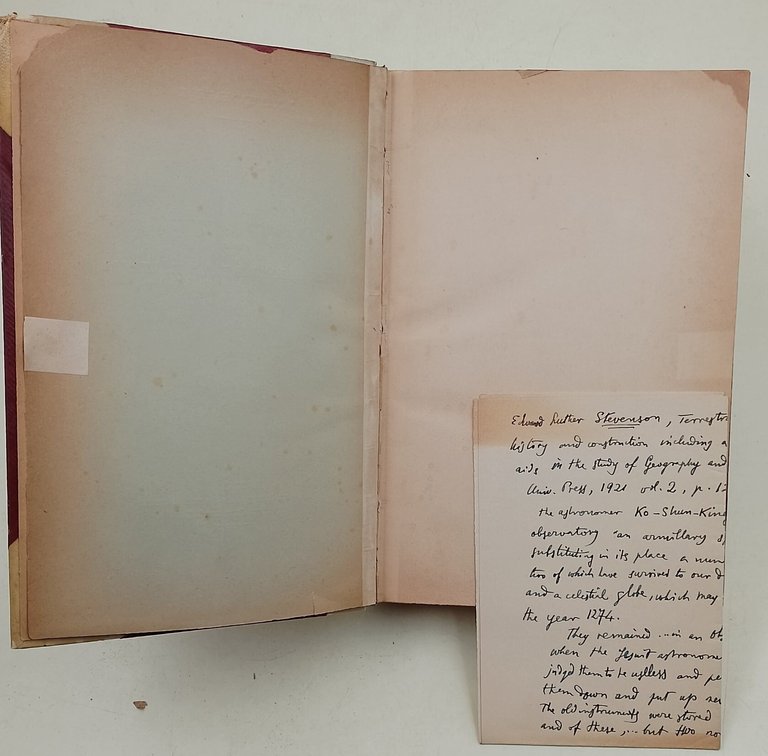 Edward Luther Stevenson, Terrestr
history and construction including a
aids in the study of Geography and
Univ. Press, 1921 vol. 2, p. 12
the astronomer Ko-Shun-King
observatory an armillary s
substituting in its place a num
two of which have survived to our d
and a celestial globe, which may
the year 1274.
They remained ... in an Ob
when the Jesuit astronome
judged them to be useless and pe
them down and put up new
The old instruments were stored
and of these, ... but two no